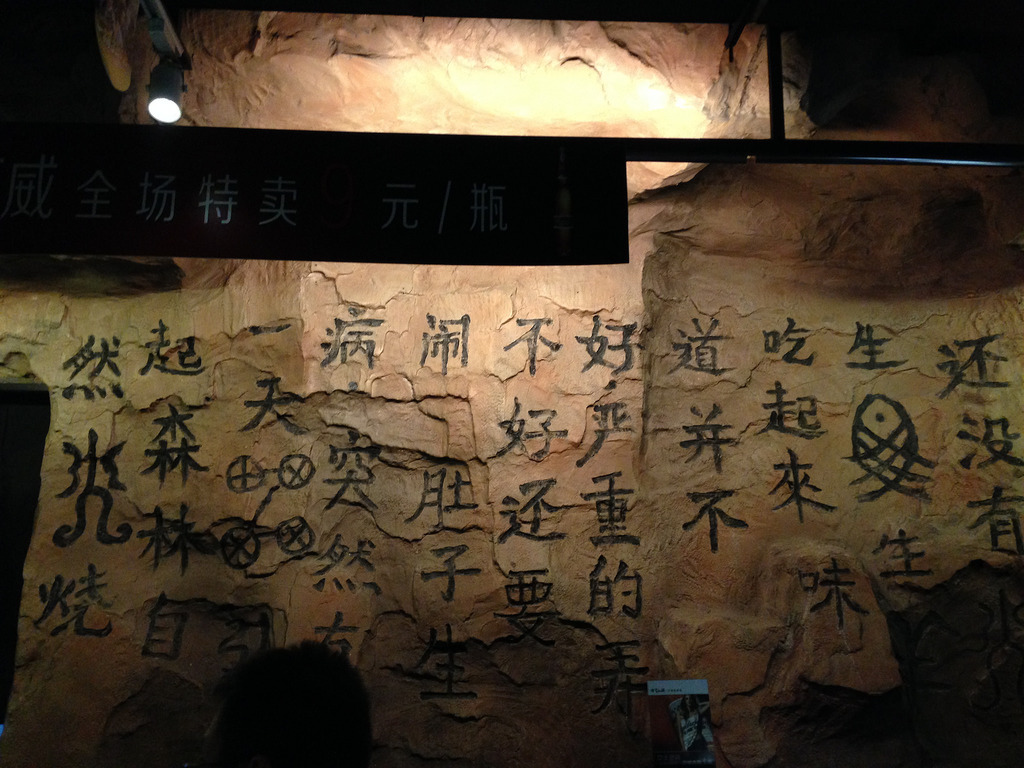 威全场特卖9元/瓶
还没有
生生
吃起來味
道并不
好严重的弄
不好还要
闹肚子生
病突然有
一天引
起森林自
然烧